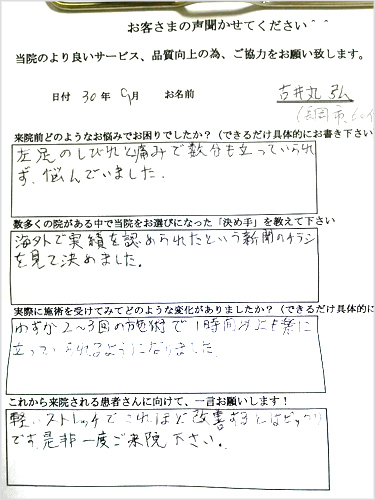 お客さまの声聞かせてください^^
当院のより良いサービス、品質向上の為、ご協力をお願い致します。
日付 30年 9月 お名前 吉井丸 弘
来院前どのようなお悩みでお困りでしたか？（できるだけ具体的にお書き下さい
左足のしびれと痛みで数分も立っていられ
ず、悩んでいました.
数多くの院がある中で当院をお選びになった「決め手」を教えて下さい
海外で実績を認められたという新聞のチラシ
を見て決めました.
実際に施術を受けてみてどのような変化がありましたか？（できるだけ具体的に
わずか2～3回の施術で1時間以上も楽に
立っていられるようになりました.
これから来院される患者さんに向けて、一言お願いします！
軽いストレッチでこれほど改善するとはビックリ
です.是非一度ご来院下さい。